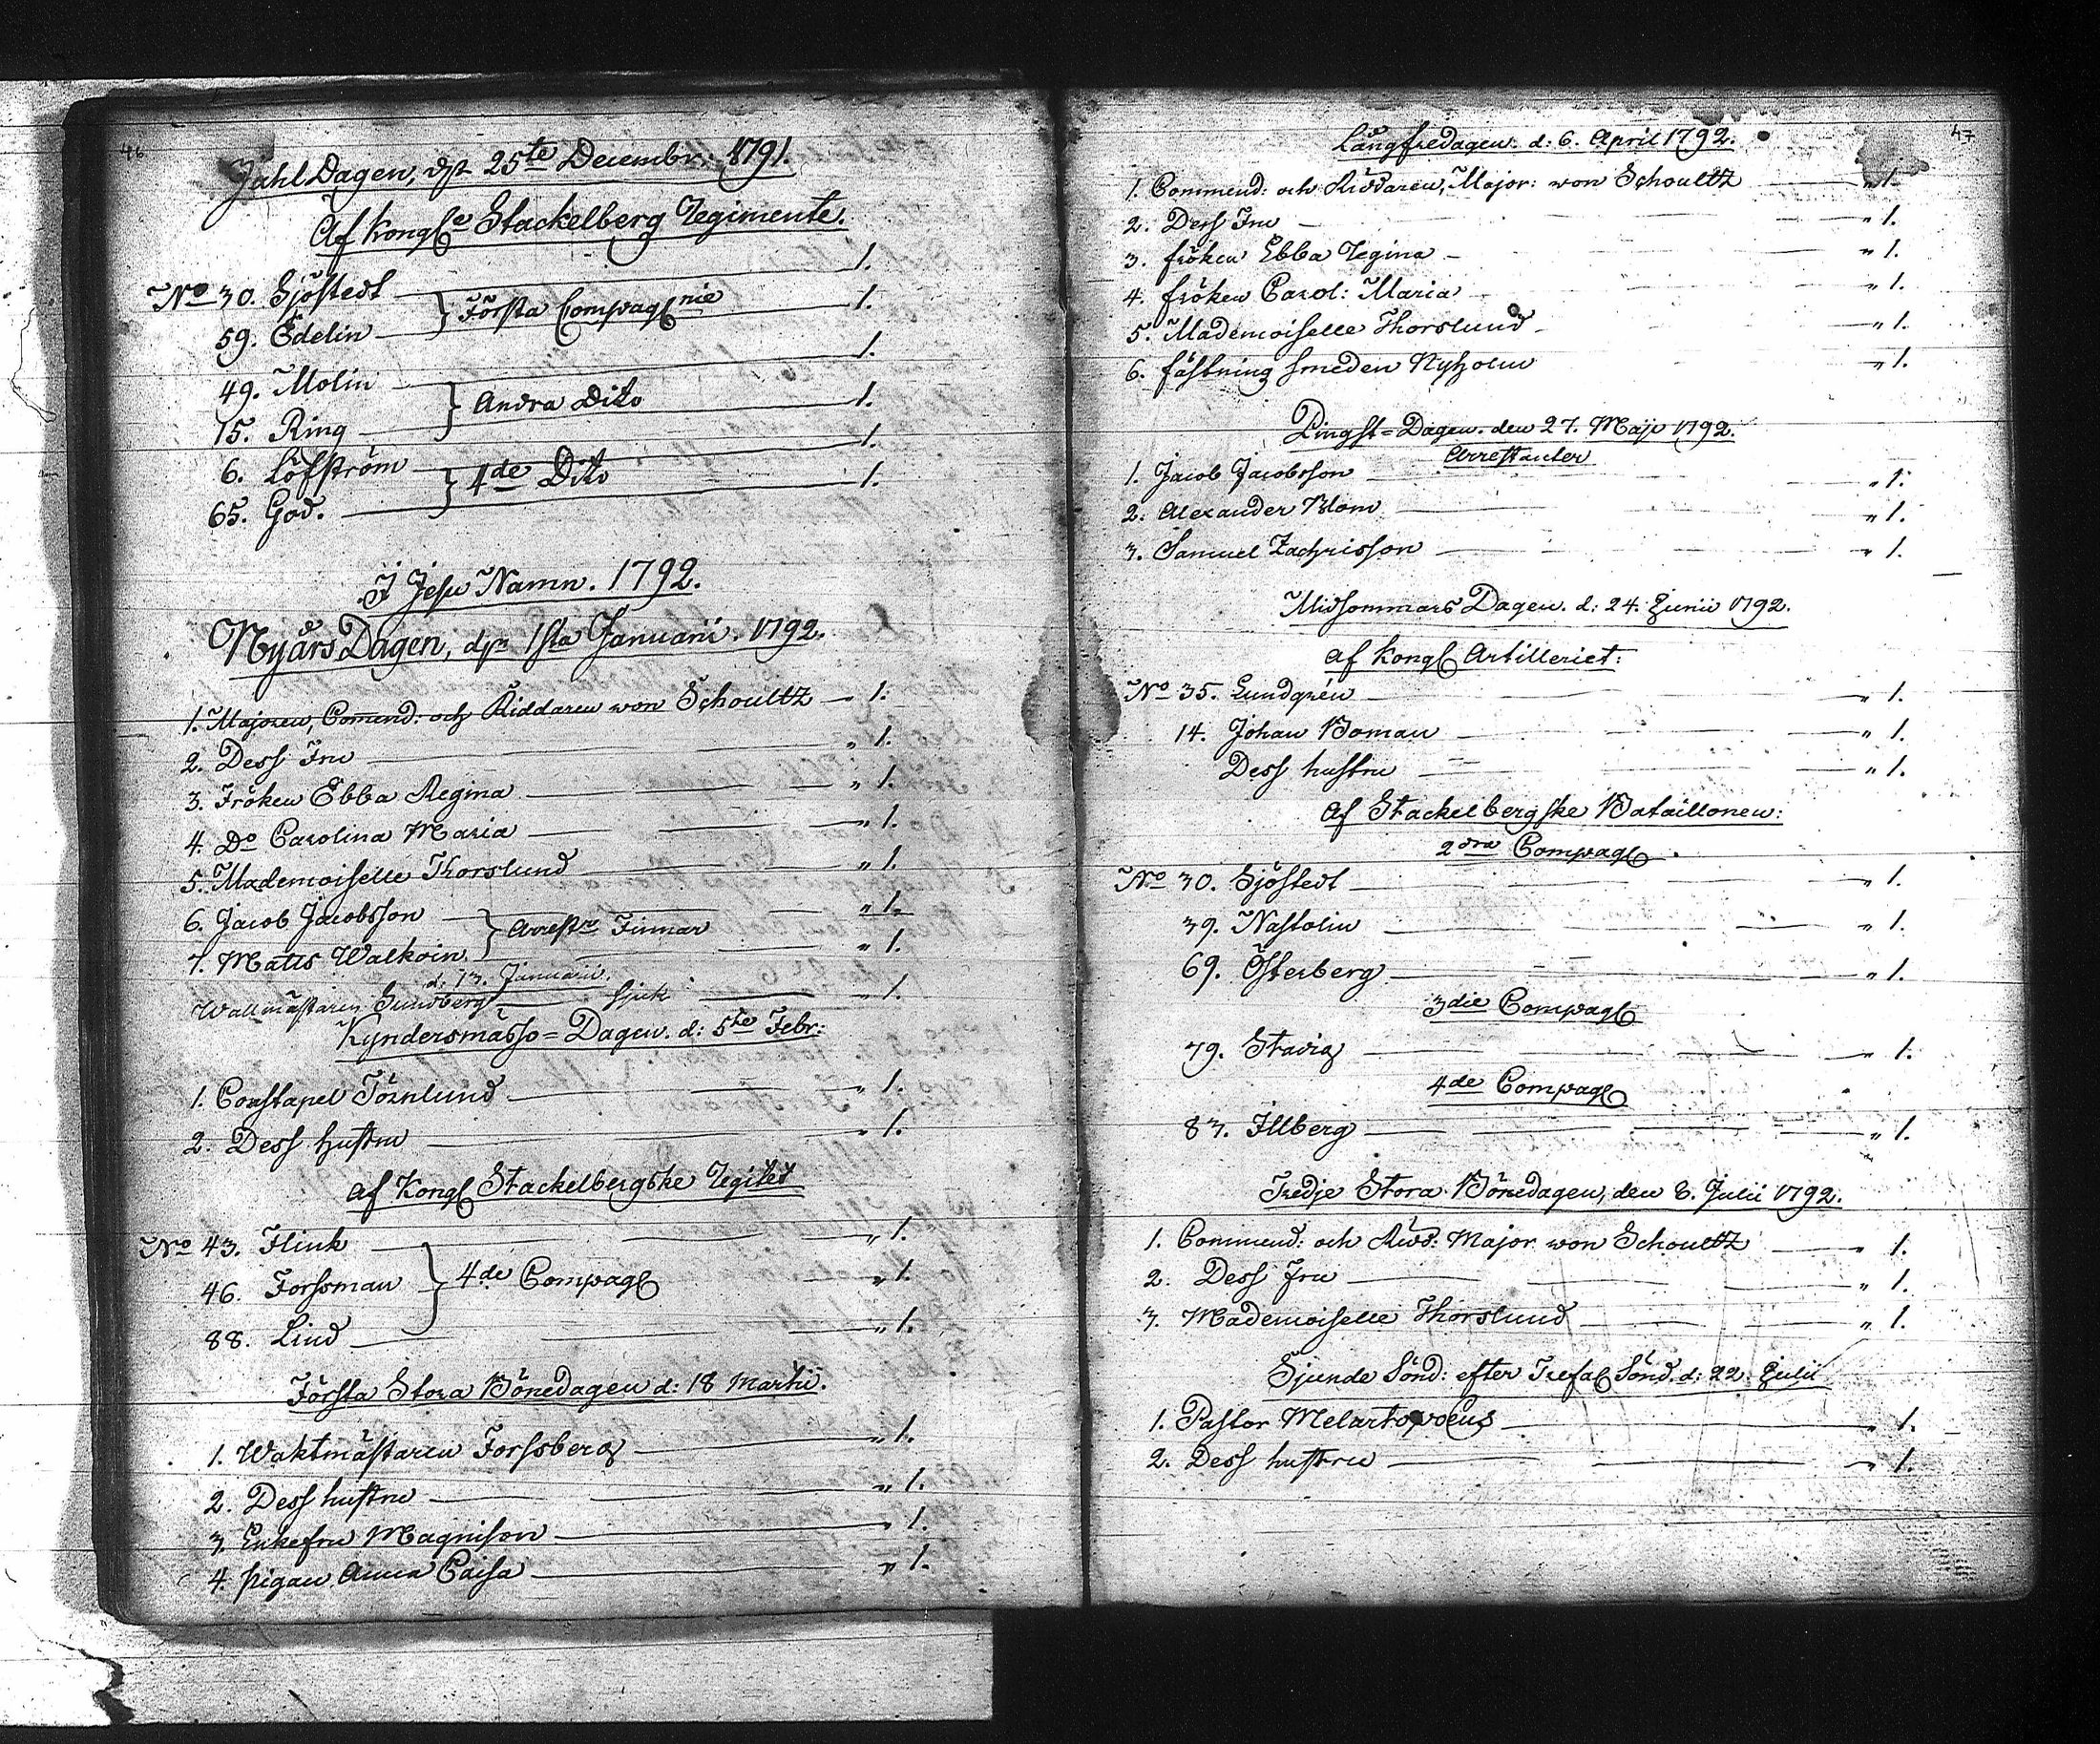 46
Jühl Dagen, d 25te Decembr: 1791.
Af Kongl Stackelberg Regimente.
No 30. Sjöstedt 1.
Första Compagnie
59. Edelin 1.
49. Molin 1.
Andra Dito
15. Ring 1.
6. Löfström 1.
4de Dito
65. God. 1.
J Jesu Namn. 1792.
Nyårs Dagen, d 1sta Januarii. 1792.
1. Majoren, Com̄end: och Riddaren von Schoultz 1.
2. Dess Fru „ 1.
3. Fröken Ebba Regina „ 1.
4. Do Carolina Maria „ 1.
5. Mademoiselle Thorslund „ 1.
6. Jacob Jacobsson „ 1.
Arrestr Finnar
7. Matts Walkoin „ 1.
d. 13. Januarii.
Wallmästaren Sundberg sjuk „ 1.
Kyndersmässo=Dagen. d: 5te Febr:
1. Constapel Törnlund „ 1.
2. Dess hustru „ 1.
af Kongl Stackelbergske Regitet
No 43. Flink „ 1.
46. Forssman 4de Compagl „ 1.
88. Lind „ 1.
Första Stora Bönedagen d: 18 Martii.
1. Waktmästaren Forssberg „ 1.
2. Dess hustru „ 1.
3. Enkefru Magnison „ 1.
4. pigan Anna Caisa „ 1.
47
Långfredagen. d: 6. April 1792.
1. Commend: och Riddaren, Major: von Schoultz „ 1.
2. Dess Fru „ 1.
3. fröken Ebba Regina „ 1.
4. fröken Carol: Maria „ 1.
5. Mademoiselle Thorslund „ 1.
6. fästning smeden Nyholm „ 1.
Pingst=Dagen. den 27. Maji 1792.
Arrestanter
1. Jacob Jacobsson „ 1.
2. Alexander Blom „ 1.
3. Samuel Zachrisson „ 1.
Midsommars Dagen. d: 24. Junii 1792.
af Kongl Artilleriet:
No 35. Lundgrén „ 1.
14. Johan Boman „ 1.
Dess hustru „ 1.
af Stackelbergske Bataillonen:
2dra Compagl
No 30. Sjöstedt „ 1.
39. Nastolin „ 1.
69. Österberg „ 1.
3die Compagl
79. Stavig „ 1.
4de Compagl
83. Illberg „ 1.
Tredje Stora Bönedagen, den 8. Julii 1792.
1. Commend: och Ridd: Major von Schoultz „ 1.
2. Dess Fru „ 1.
3. Mademoiselle Thorslund „ 1.
Sjunde Sönd: efter Trefal Sönd. d: 22. Julii
1. Pastor „ 1.
2. Dess hustru „ 1.